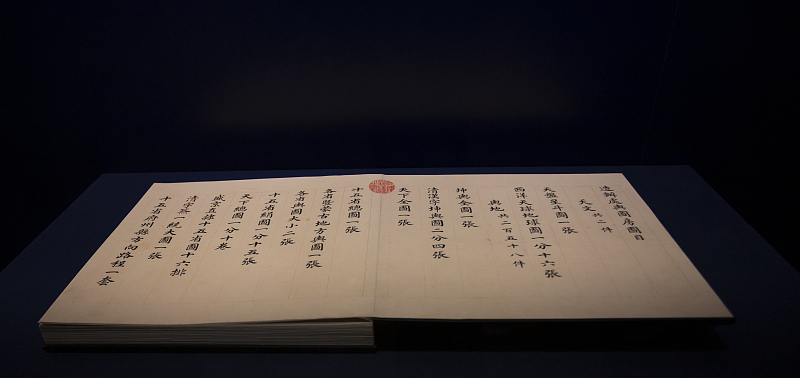 造辦處輿圖房圖目
天文 共二件
天盤星斗圖一張
西洋天球地球圖一分十六張
輿地 共二百五十八件
坤輿全圖一張
清漢字坤輿圖二分四張
天下全圖一張
十五省總圖一張
各省暨蒙古地方輿圖一張
各省輿圖大小二張
十五省絹圖一分十五張
天下總圖一分十卷
盛京直隸十五省圖十六排
清字 一統大圖一張
十五省府州縣方向路程一套